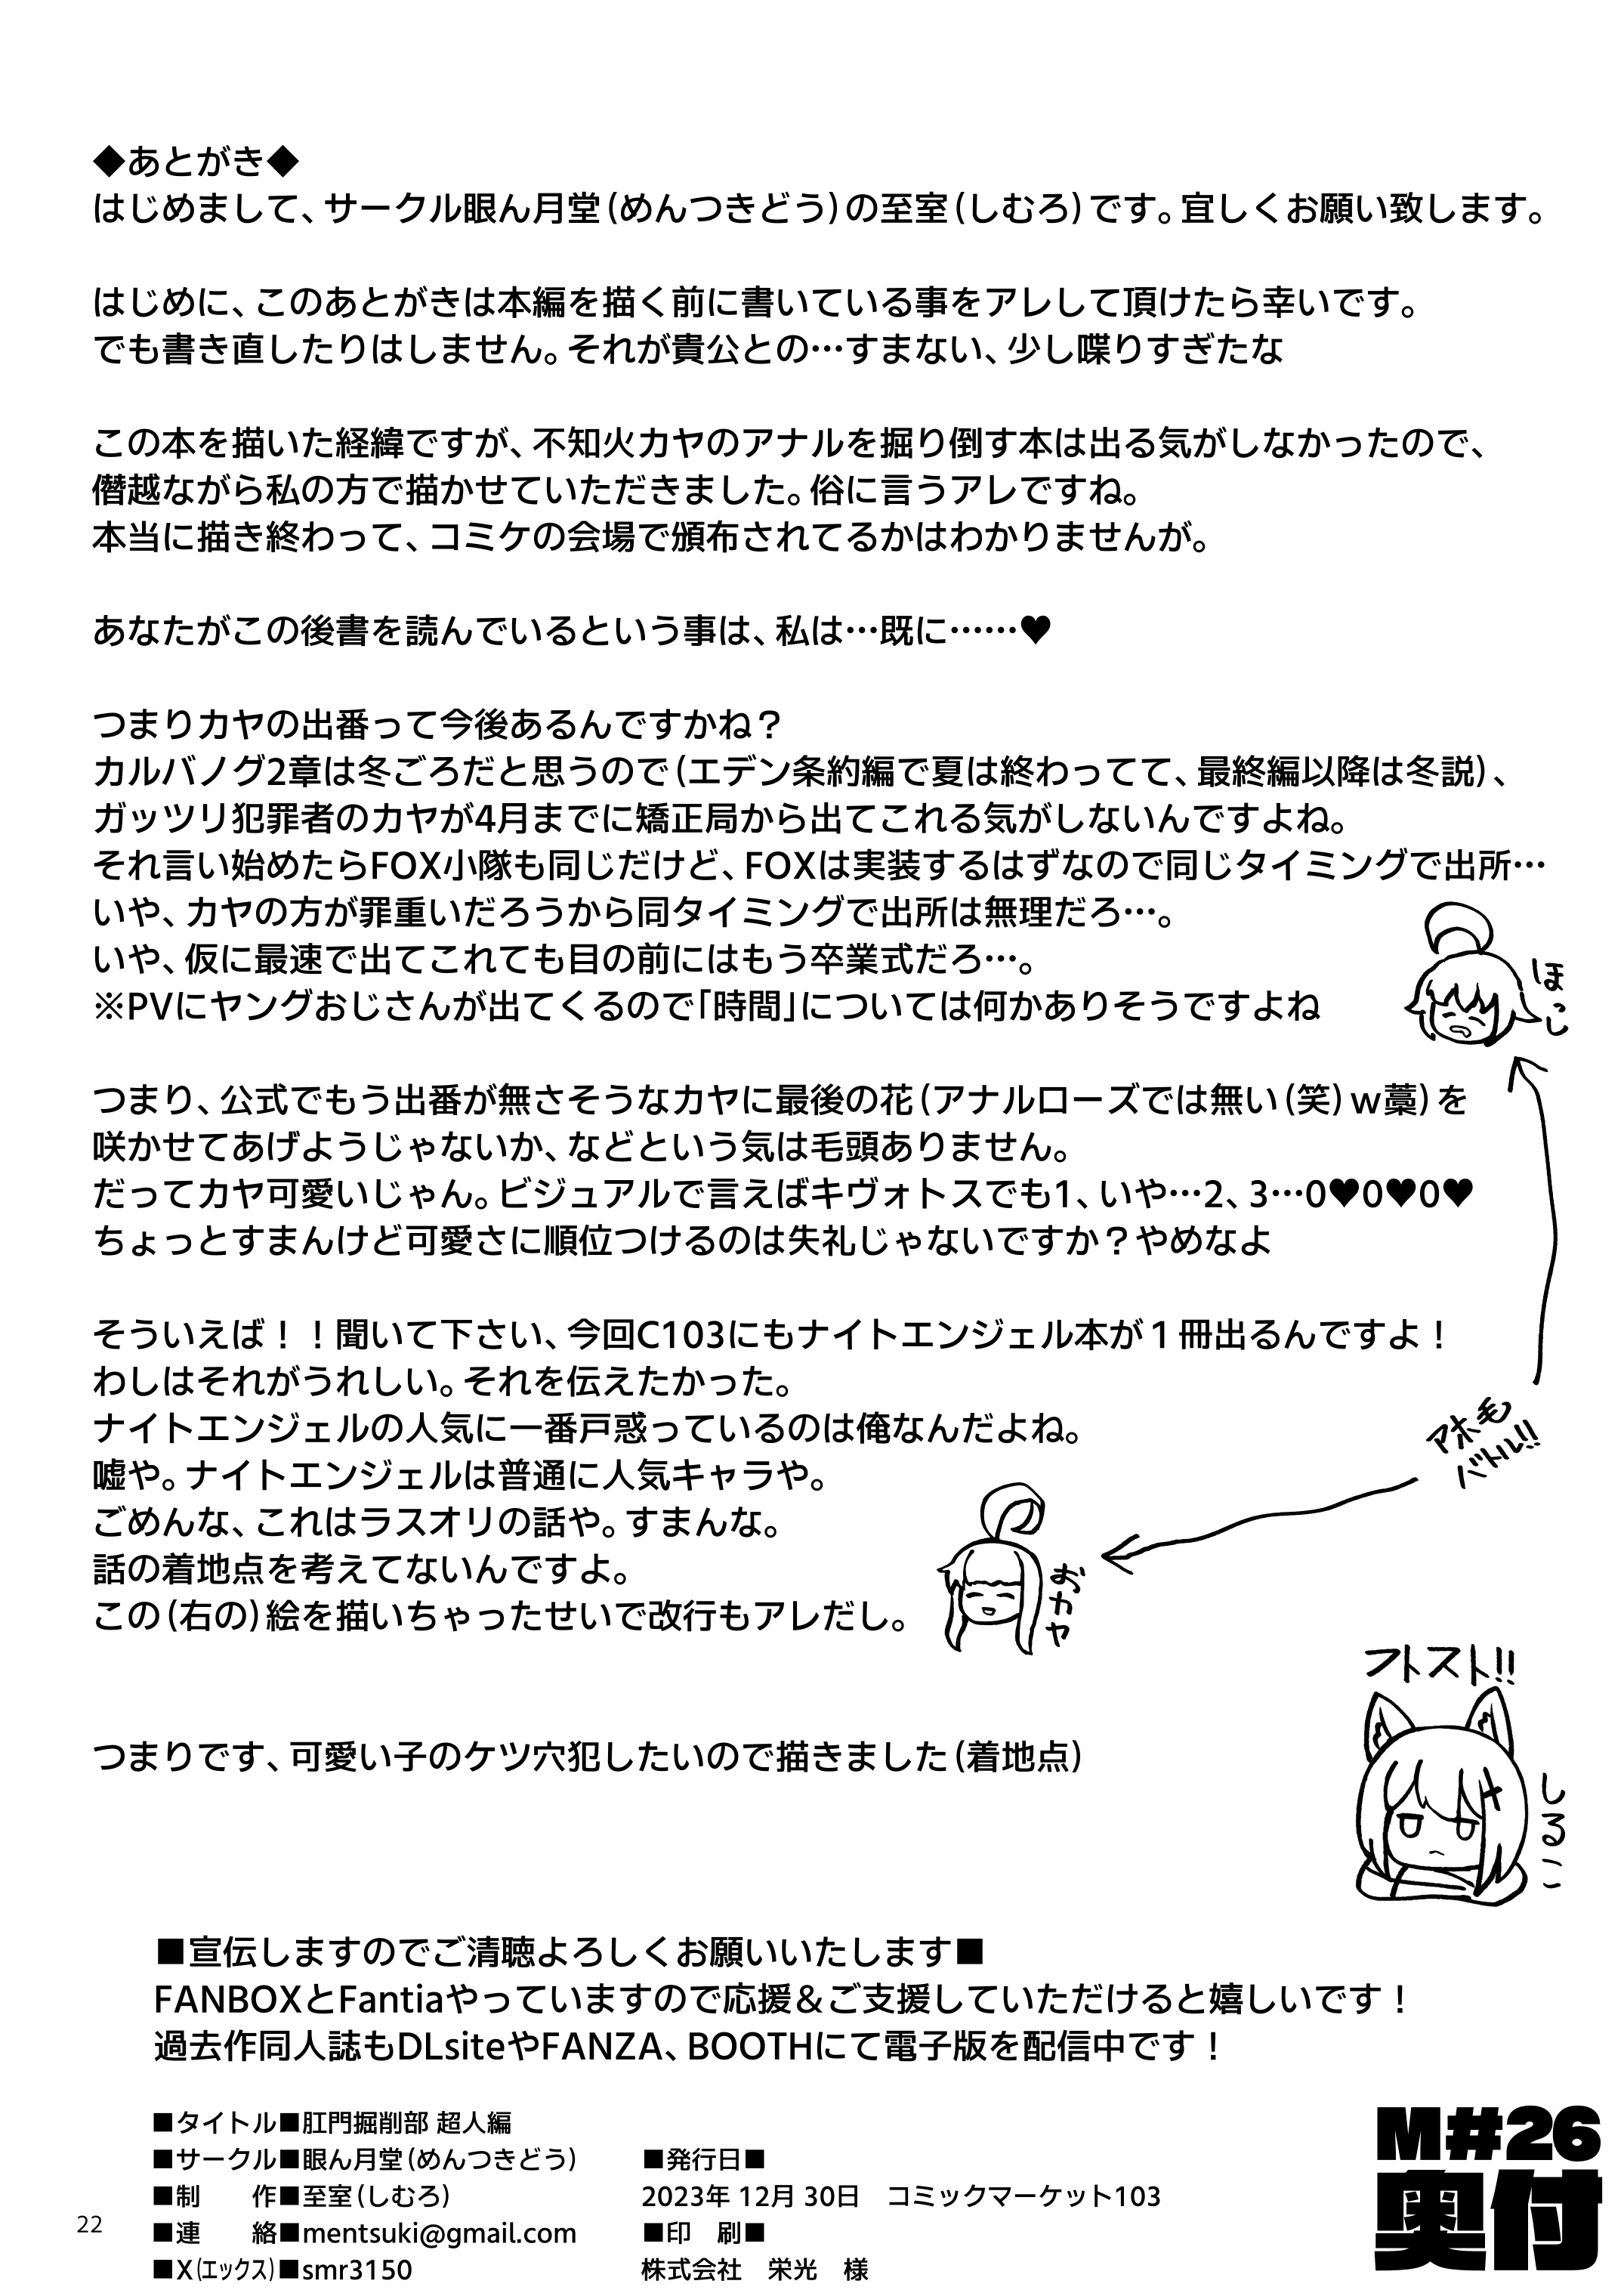 ◆あとがき◆
はじめまして、サークル眼ん月堂(めんつきどう)の至室(しむろ)です。宜しくお願い致します。
はじめに、このあとがきは本編を描く前に書いている事をアレして頂けたら幸いです。
でも書き直したりはしません。それが貴公との…すまない、少し喋りすぎたな
この本を描いた経緯ですが、不知火カヤのアナルを掘り倒す本は出る気がしなかったので、
僭越ながら私の方で描かせていただきました。俗に言うアレですね。
本当に描き終わって、コミケの会場で頒布されてるかはわかりませんが。
あなたがこの後書を読んでいるという事は、私は…既に……♥
つまりカヤの出番って今後あるんですかね？
カルバノグ2章は冬ごろだと思うので(エデン条約編で夏は終わってて、最終編以降は冬説)、
ガッツリ犯罪者のカヤが4月までに矯正局から出てこれる気がしないんですよね。
それ言い始めたらFOX小隊も同じだけど、FOXは実装するはずなので同じタイミングで出所…
いや、カヤの方が罪重いだろうから同タイミングで出所は無理だろ…。
いや、仮に最速で出てこれても目の前にはもう卒業式だろ…。
※PVにヤングおじさんが出てくるので「時間」については何かありそうですよね
ほっし
つまり、公式でもう出番が無さそうなカヤに最後の花(アナルローズでは無い(笑)w藁)を
咲かせてあげようじゃないか、などという気は毛頭ありません。
だってカヤ可愛いじゃん。ビジュアルで言えばキヴォトスでも1、いや…2、3…0♥0♥0♥
ちょっとすまんけど可愛さに順位つけるのは失礼じゃないですか？やめなよ
そういえば！！聞いて下さい、今回C103にもナイトエンジェル本が１冊出るんですよ！
わしはそれがうれしい。それを伝えたかった。
ナイトエンジェルの人気に一番戸惑っているのは俺なんだよね。
嘘や。ナイトエンジェルは普通に人気キャラや。
ごめんな、これはラスオリの話や。すまんな。
話の着地点を考えてないんですよ。
この(右の)絵を描いちゃったせいで改行もアレだし。
アホ毛
バトル!!
おカヤ
フトスト!!
しるこ
つまりです、可愛い子のケツ穴犯したいので描きました(着地点)
■宣伝しますのでご清聴よろしくお願いいたします■
FANBOXとFantiaやっていますので応援＆ご支援していただけると嬉しいです！
過去作同人誌もDLsiteやFANZA、BOOTHにて電子版を配信中です！
■タイトル■肛門掘削部 超人編
■サークル■眼ん月堂(めんつきどう)
■制　　作■至室(しむろ)
■連　　絡■mentsuki@gmail.com
■X(エックス)■smr3150
■発行日■
2023年 12月 30日　コミックマーケット103
■印　刷■
株式会社　栄光　様
M#26
奥付
22